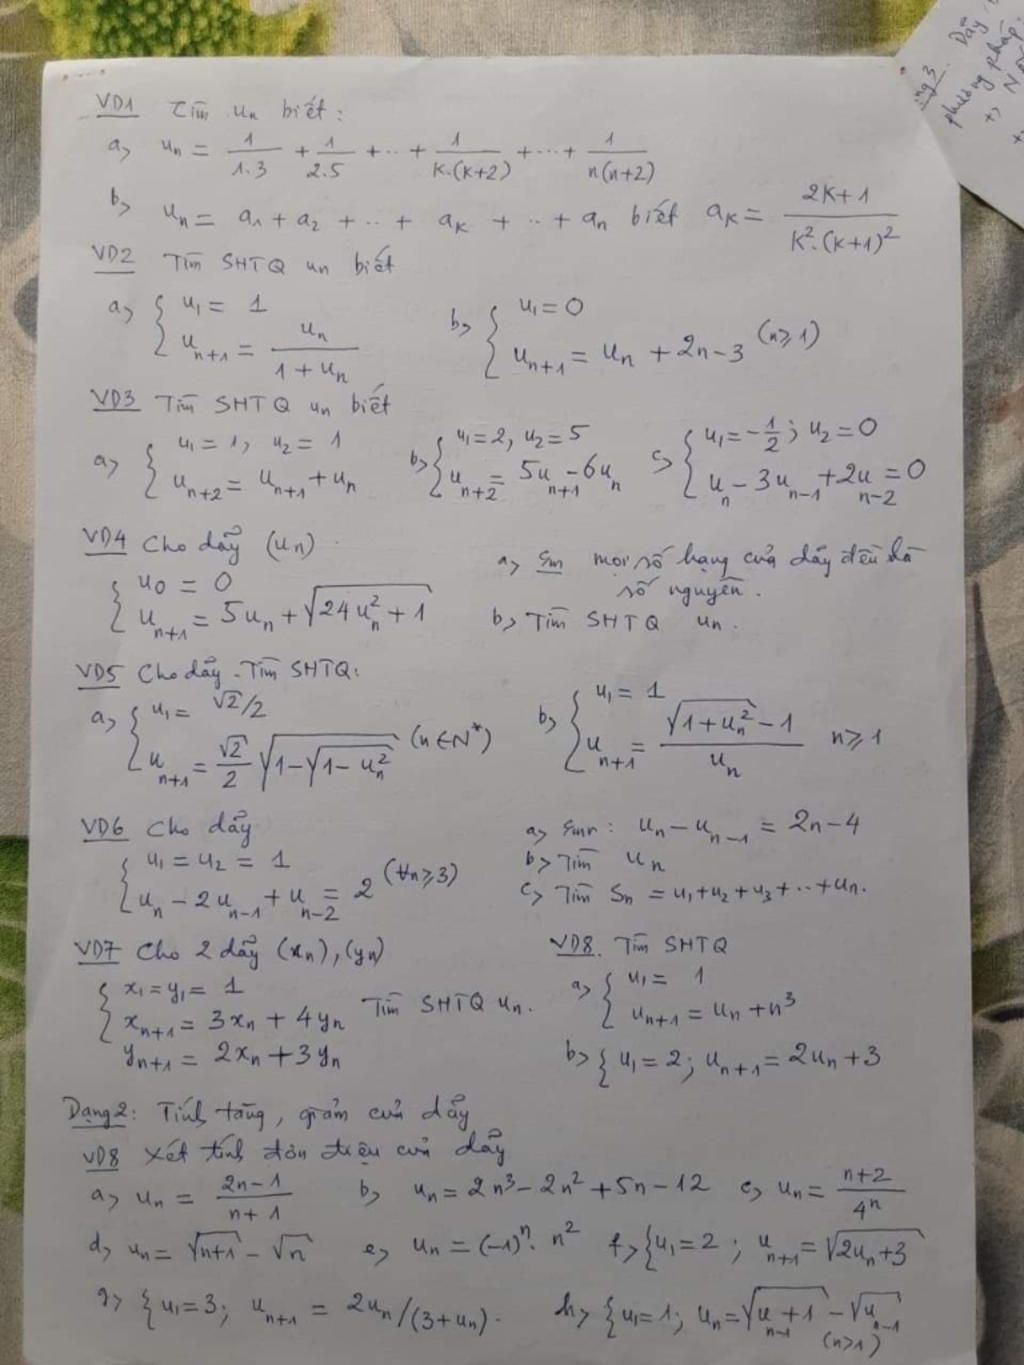 VD1 Tìm un biết:
a, un = 1/1.3 + 1/2.5 + .. + 1/K.(K+2) + ... + 1/n(n+2)
b, un = a1 + a2 + .. + aK + .. + an biết aK = 2K+1/K².(K+1)²
VD2 Tìm SHTQ un biết
a, { u1 = 1
un+1 = un/1+un
b, { u1 = 0
un+1 = un + 2n-3 (n≥1)
VD3 Tìm SHTQ un biết
a, { u1 = 1, u2 = 1
un+2 = un+1 + un
b, { u1=2, u2=5
un+2 = 5un+1 - 6un
c, { u1=-1/2; u2=0
un - 3un-1 + 2un-2 = 0
VD4 Cho dãy (un)
{ u0 = 0
un+1 = 5un + √(24un²+1)
a, mọi số hạng của dãy đều là
số nguyên.
b, Tìm SHTQ un.
VD5 Cho dãy. Tìm SHTQ:
a, { u1 = √2/2
un+1 = √2/2 √(1-√(1-un²)) (n∈N*)
b, { u1 = 1
un+1 = √(1+un²)-1/un n≥1
VD6 Cho dãy
{ u1 = u2 = 1
un - 2un-1 + un-2 = 2 (∀n≥3)
a, : un - un-1 = 2n-4
b, Tìm un
c, Tìm Sn = u1+u2+u3+...+un.
VD7 Cho 2 dãy (xn), (yn)
{ x1 = y1 = 1
xn+1 = 3xn + 4yn
yn+1 = 2xn + 3yn
Tìm SHTQ un.
VD8. Tìm SHTQ
a, { u1 = 1
un+1 = un + n³
b, { u1 = 2; un+1 = 2un + 3
Dạng 2: Tính tăng, giảm của dãy
VD8 Xét tính đơn điệu của dãy
a, un = 2n-1/n+1 b, un = 2n³ - 2n² + 5n - 12 c, un = n+2/4ⁿ
d, un = √(n+1) - √n e, un = (-1)ⁿ. n² f, { u1=2; un+1 = √(2un+3)
g, { u1=3; un+1 = 2un/(3+un). h, { u1=1; un = √(un-1+1) - √un-1
(n>1)
phương pháp